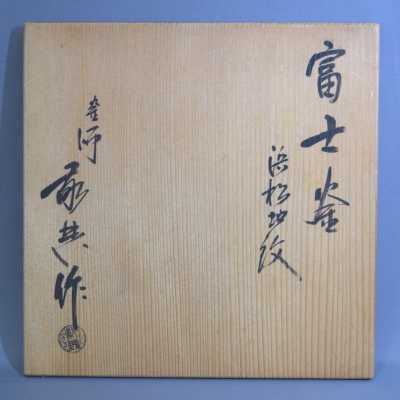 富士釜
浜松地紋
釜師
敬典作